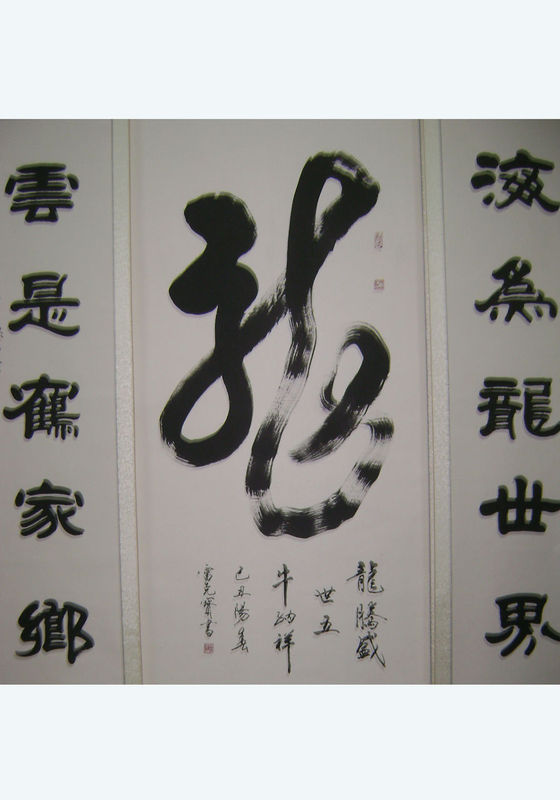 海為龍世界
龍
龍騰盛
世五
牛納祥
己丑陽春
雲是鶴家鄉